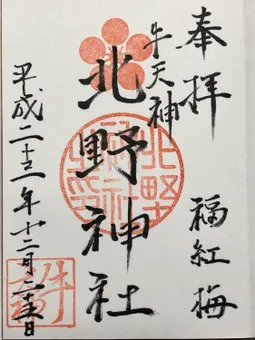 奉拝
福紅梅
牛天神
北野神社
平成二十三年十二月二十五日
牛天神